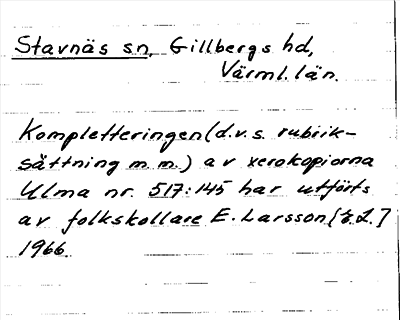 Stavnäs sn, Gillbergs hd,
Värml. län.
Kompletteringen (d.v.s. rubrik-
sättning m m.) av xerokopiorna
Ulma nr. 517:145 har utförts
av folkskollare E. Larsson [E.L.]
1966.